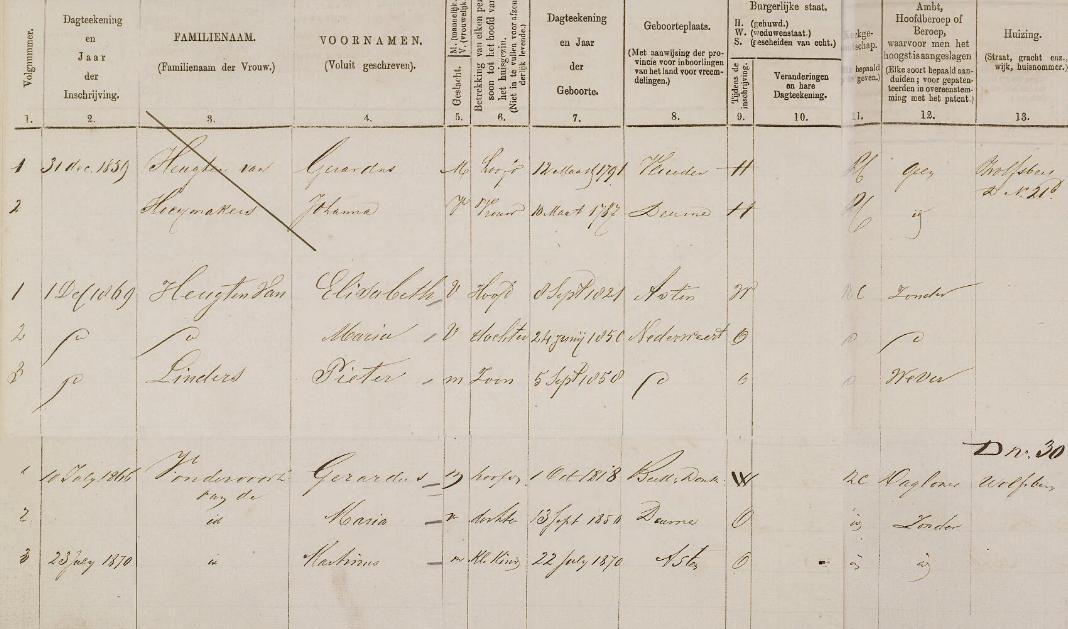 Volgnummer.
Dagteekening en Jaar der Inschrijving.
FAMILIENAAM. (Familienaam der Vrouw.)
VOORNAMEN. (Voluit geschreven).
Geslacht. M. (mannelijk. V. (vrouwelijk
Betrekking van elken per soon tot het hoofd van het huisgezin. (Niet in te vullen voor afzon derlijk levende.)
Dagteekening en Jaar der Geboorte.
Geboorteplaats. (Met aanwijzing der provincie voor inboorlingen van het land voor vreemdelingen.)
Burgerlijke staat.
H. (gehuwd.)
W. (weduwenstaat.)
S. (gescheiden van echt.)
Tijdens de inschrijving.
Veranderingen en hare Dagteekening.
Ambt, Hoofdberoep of Beroep, waarvoor men het hoogst is aangeslagen (Elke soort bepaald aanduiden; voor gepatenteerden in overeenstemming met het patent.)
Huizing. (Straat, gracht enz., wijk, huisnommer.)
1. 2. 3. 4. 5. 6. 7. 8. 9. 10. 11. 12. 13.
1 31 dec. 1859 Heugten van Gerardus M hoofd 12 Maart 1791 H Wolfsberg
D No. 21
2 Hoeymakers Johanna V Vrouw 10 Maart 1787 Deurne H
1 1 Dec 1869 Heugten Van Elisabeth V Hoofd 8 Sept 1821 Asten W Zonder
2 Maria V dochter 24 Junij 1850 Nederweert O
3 Linders Pieter m Zoon 5 Sept 1858 O Wever
D no. 30
10 July 1866 Vondervoort Gerardus m hoofd 1 Oct 1818 W RC Wolfsberg
van de
2 id Maria v dochter 13 Sept 1850 Deurne O Zonder
3 23 July 1870 Martinus m Kl. Kind 22 July 1870 Asten O